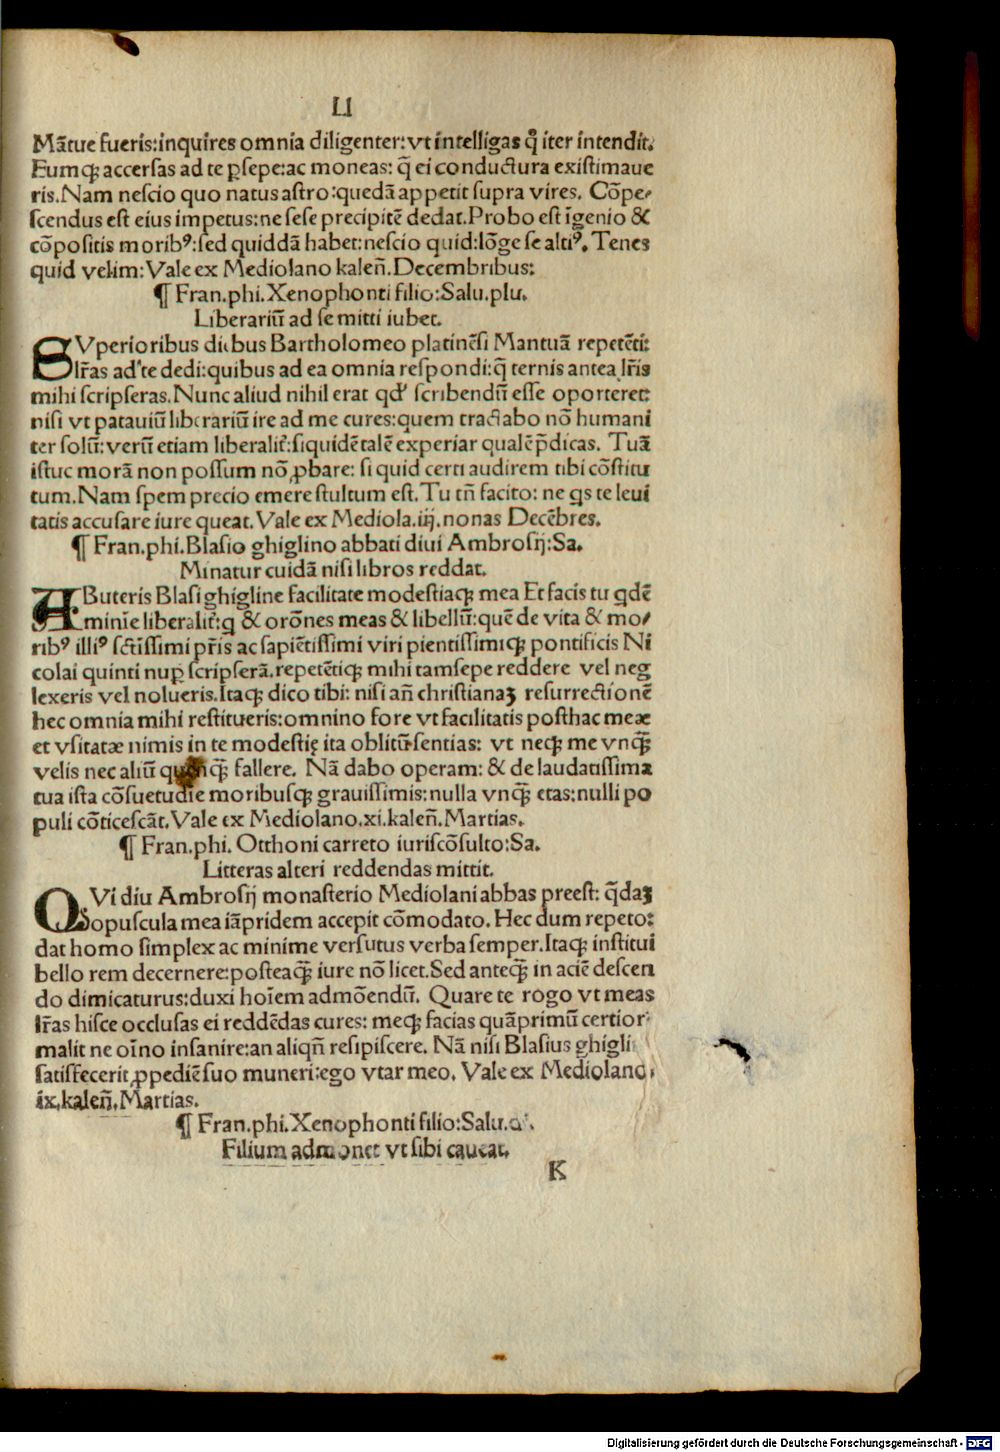 LI
Mātue fueris:inquires omnia diligenter:vt intelligas q̊ iter intendit.
Eumqȝ accersas ad te ꝑsepe:ac moneas: q̄ ei conductura existimaue
ris.Nam nescio quo natus astro:quedā appetit supra vires. Cōpe⸗
scendus est eius impetus:ne sese precipitē dedat.Probo est īgenio &
cōpositis moribꝰ:sed quiddā habet:nescio quid:lōge se altiꝰ. Tenes
quid velim:Vale ex Mediolano kaleñ.Decembribus:
¶ Fran.phi.Xenophonti filio:Salu.plu.
Liberariū ad se mitti iubet.
SVperioribus diebus Bartholomeo platinēsi Mantuā repetēti:
lr̄as ad te dedi:quibus ad ea omnia respondi:q̄ ternis antea lr̄is
mihi scripseras.Nunc aliud nihil erat qd' scribendū esse oporteret:
nisi vt patauiū liberariū ire ad me cures:quem tractabo nō humani
ter solū:verū etiam liberalit̄:siquidē talē experiar qualē p̄dicas. Tuā
istuc morā non possum nō ꝓbare: si quid certi audirem tibi cōstitu
tum.Nam spem precio emere stultum est.Tu tñ facito: ne qs te leui
tatis accusare iure queat.Vale ex Mediola.iij.nonas Decēbres.
¶ Fran.phi.Blasio ghiglino abbati diui Ambrosij:Sa.
Minatur cuidā nisi libros reddat.
AButeris Blasi ghigline facilitate modestiaqȝ mea Et facis tu qdē
minie liberalit̄:q & orōnes meas & libellū:quē de vita & mo⸗
ribꝰ illiꝰ sctīssimi pr̄is ac sapiētissimi viri pientissimiqȝ pontificis Ni
colai quinti nuꝑ scripserā.repetētiqȝ mihi tamsepe reddere vel neg
lexeris vel nolueris.Itaqȝ dico tibi: nisi añ christianaȝ resurrectionē
hec omnia mihi restitueris:omnino fore vt facilitatis posthac meæ
et vsitatæ nimis in te modestię ita oblitū sentias: vt neqȝ me vnqȝ̄
velis nec aliū qȝ̄ fallere. Nā dabo operam: & de laudatissima
tua ista cōsuetudīe moribusqȝ grauissimis:nulla vnqȝ̄ etas:nulli po
puli cōticescāt.Vale ex Mediolano.xi.kaleñ.Martias.
¶ Fran.phi. Otthoni carreto iuriscōsulto:Sa.
Litteras alteri reddendas mittit.
QVi diu Ambrosij monasterio Mediolani abbas preest: q̄daȝ
opuscula mea iāpridem accepit cōmodato. Hec dum repeto:
dat homo simplex ac minime versutus verba semper.Itaqȝ institui
bello rem decernere:posteaqȝ̄ iure nō licet.Sed anteqȝ̄ in aciē descen
do dimicaturus:duxi hoīem admōendū. Quare te rogo vt meas
lr̄as hisce occlusas ei reddēdas cures: meqȝ facias quāprimū certior
malit ne oīno insanire:an aliqñ resipiscere. Nā nisi Blasius ghigli
satisfecerit ꝓpediē suo muneri:ego vtar meo. Vale ex Mediolano.
ix.kaleñ.Martias.
¶ Fran.phi.Xenophonti filio:Salu.
Filium admonet vt sibi caueat.
K
Digitalisierung gefördert durch die Deutsche Forschungsgemeinschaft - DFG